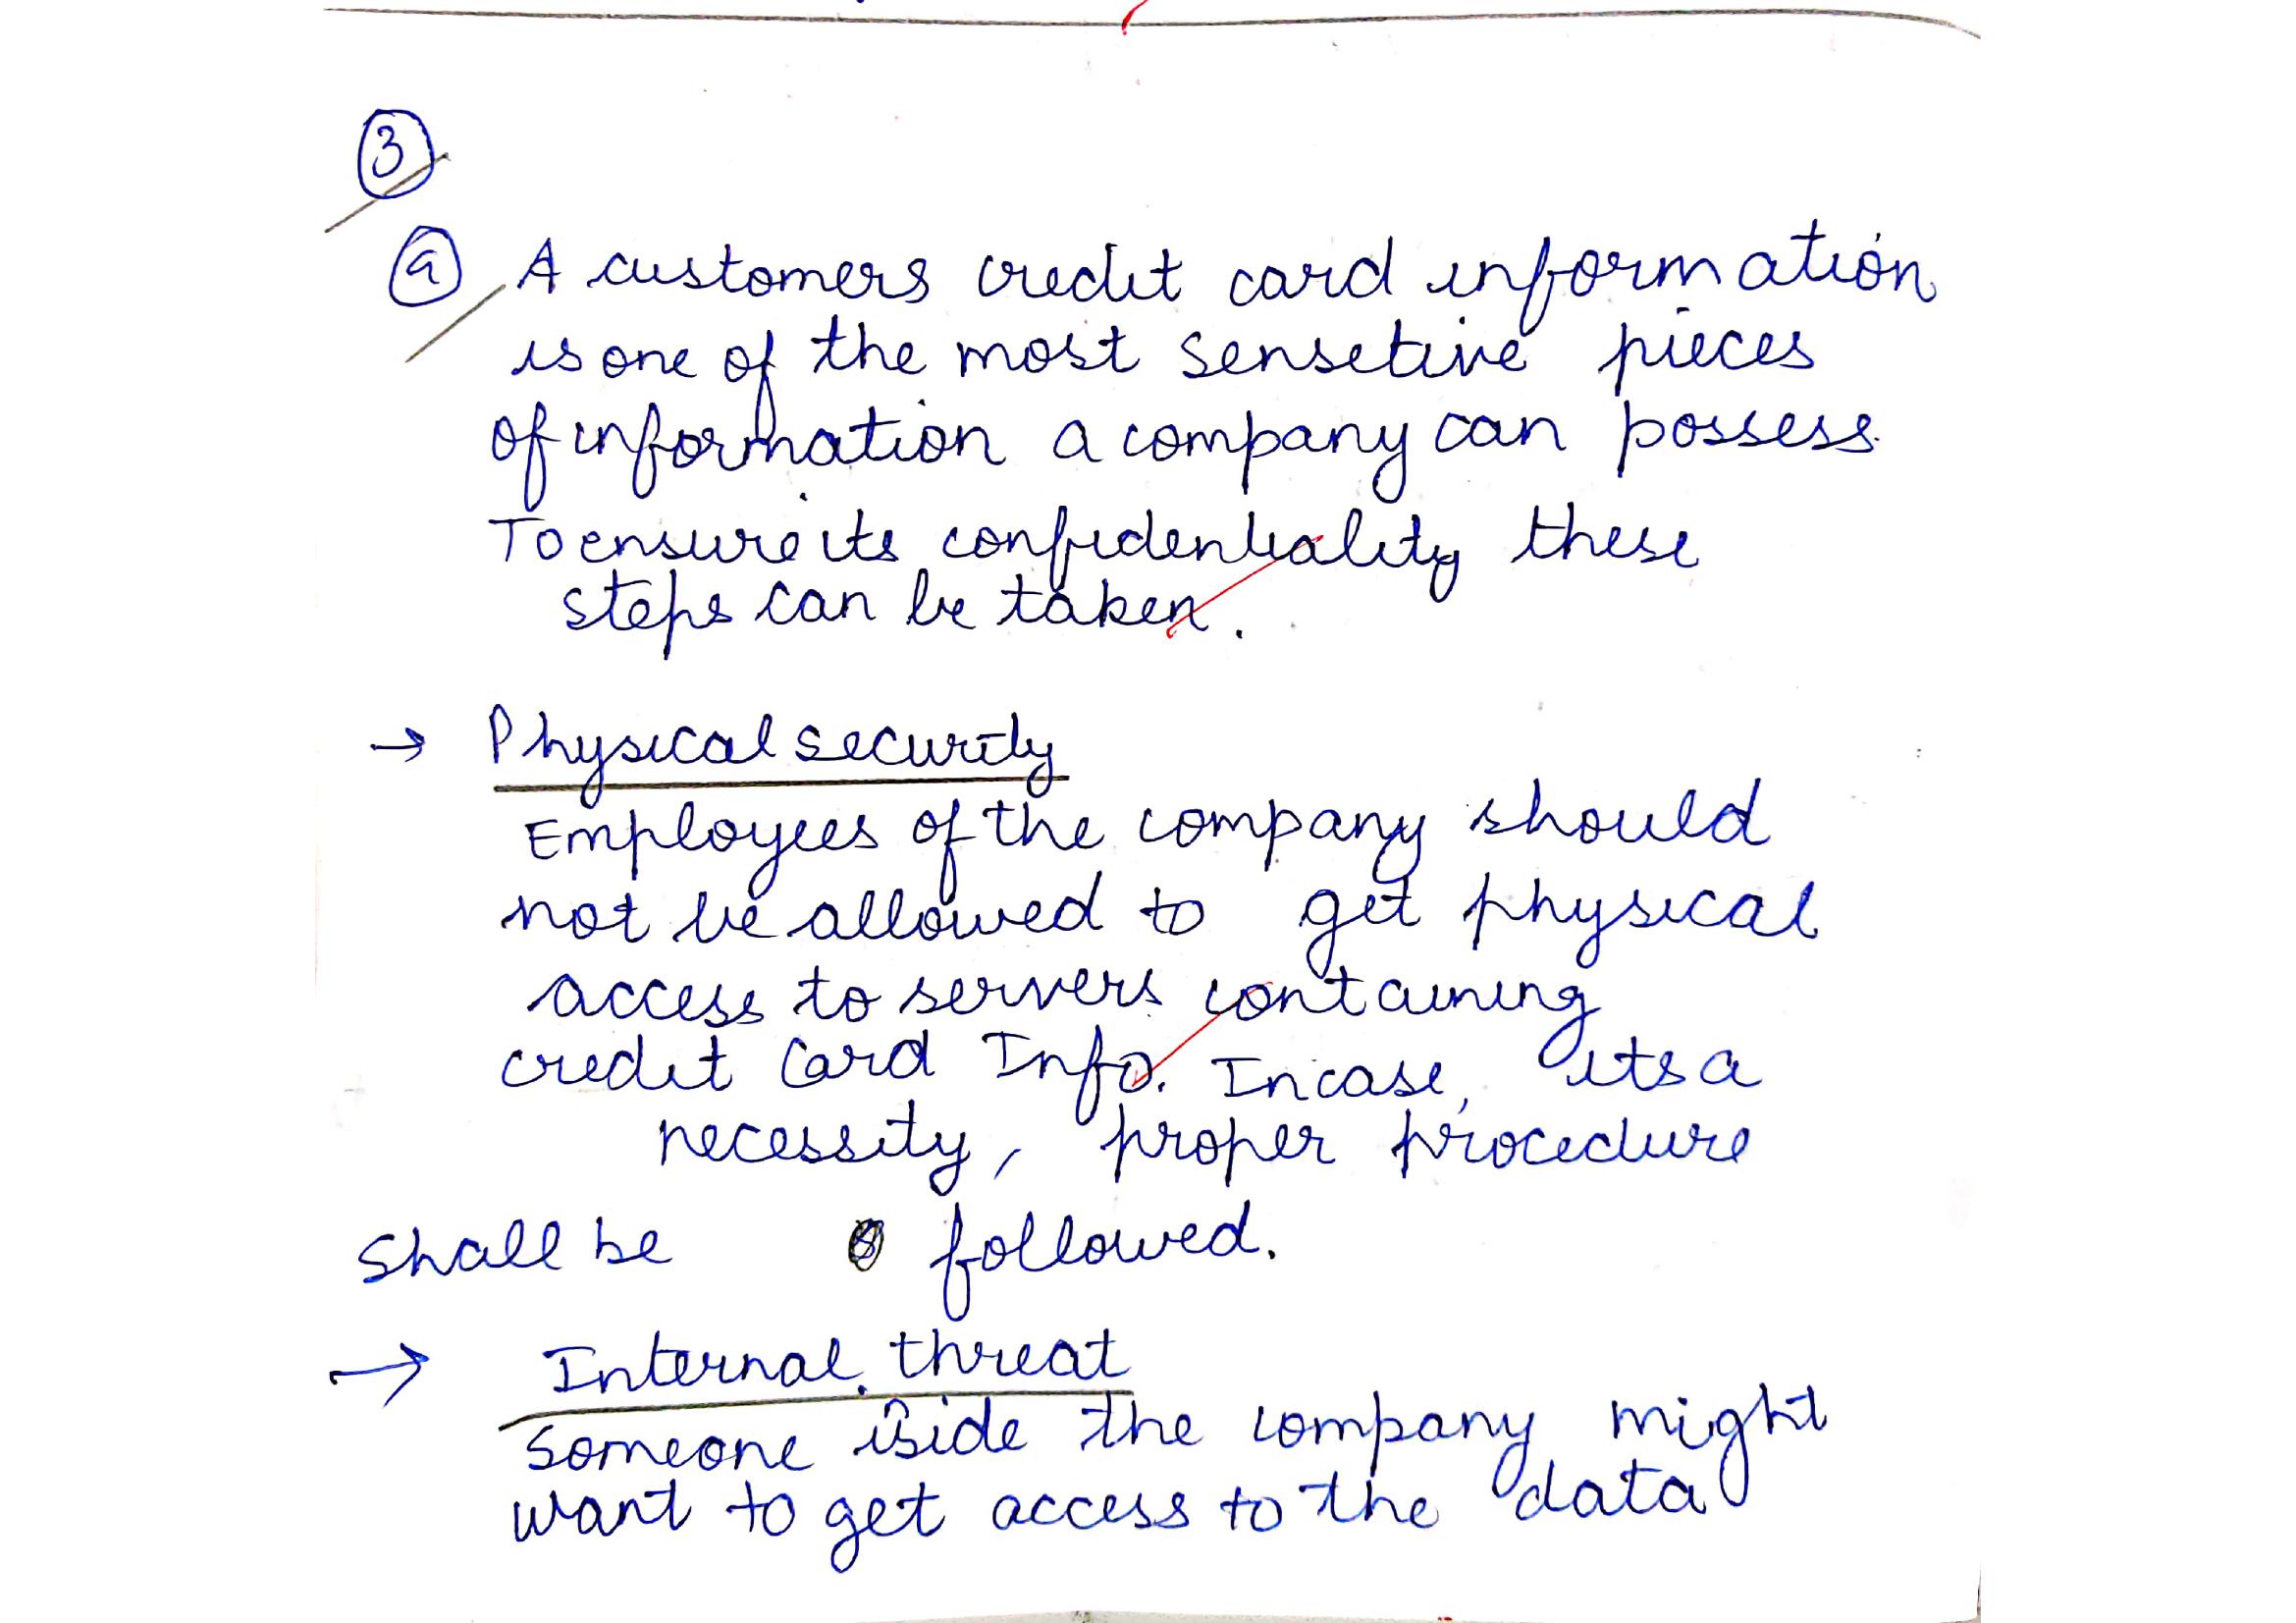 3
a A customers credit card information
is one of the most sensetive pieces
of information a company can possess.
To ensure its confidentiality these
steps can be taken.
→ Physical security
Employees of the company should
not be allowed to get physical
access to servers containing
credit Card Info. Incase, its a
necessity, proper procedure
shall be followed.
→ Internal threat
Someone iside the company might
want to get access to the data